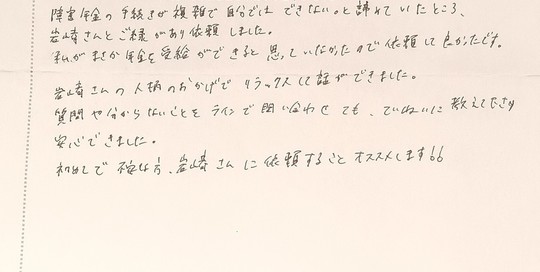 障害年金の手続きが複雑で自分では できない。と諦めていたところ、
岩崎さんとご縁があり依頼しました。
私がまさか年金を受給ができると思っていなかったので依頼して良かったです。
岩崎さんの人柄のおかげでリラックスして話ができました。
質問や分からないことをラインで問い合わせても、ていねいに教えてくださり
安心できました。
初めて 不安な方、岩崎さんに依頼することオススメします